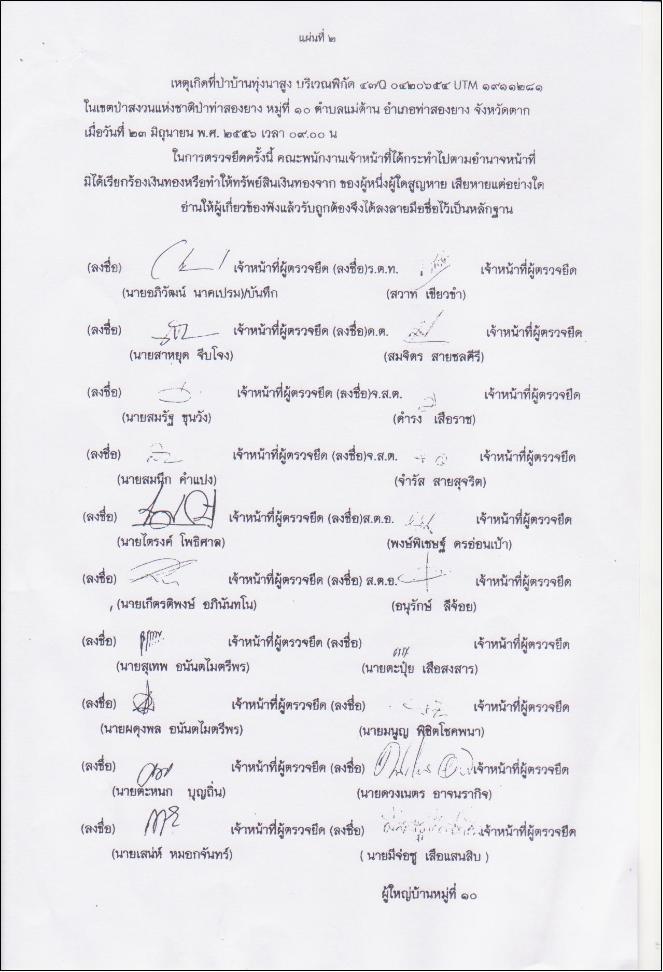 แผ่นที่ ๒
เหตุเกิดที่ป่าบ้านทุ่งนาสูง บริเวณพิกัด ๔๗Q ๐๔๒๐๖๕๔ UTM ๑๙๑๑๒๘๑
ในเขตป่าสงวนแห่งชาติป่าท่าสองยาง หมู่ที่ ๑๐ ตำบลแม่ต้าน อำเภอท่าสองยาง จังหวัดตาก
เมื่อวันที่ ๒๓ มิถุนายน พ.ศ. ๒๕๕๖ เวลา ๐๙.๐๐ น
ในการตรวจยึดครั้งนี้ คณะพนักงานเจ้าหน้าที่ได้กระทำไปตามอำนาจหน้าที่
มิได้เรียกร้องเงินทองหรือทำให้ทรัพย์สินเงินทองจาก ของผู้หนึ่งผู้ใดสูญหาย เสียหายแต่อย่างใด
อ่านให้ผู้เกี่ยวข้องฟังแล้วรับถูกต้องจึงได้ลงลายมือชื่อไว้เป็นหลักฐาน
(ลงชื่อ) เจ้าหน้าที่ผู้ตรวจยึด (ลงชื่อ)ร.ต.ท. เจ้าหน้าที่ผู้ตรวจยึด
(นายอภิวัฒน์ นาคเปรม)/บันทึก (สวาท เขียวขำ)
(ลงชื่อ) เจ้าหน้าที่ผู้ตรวจยึด (ลงชื่อ)ด.ต. เจ้าหน้าที่ผู้ตรวจยึด
(นายสาหยุด จีบโจง) (สมจิตร สายชลคีรี)
(ลงชื่อ) เจ้าหน้าที่ผู้ตรวจยึด (ลงชื่อ)จ.ส.ต. เจ้าหน้าที่ผู้ตรวจยึด
(นายสมรัฐ ขุนวัง) (ดำรง เสือราช)
(ลงชื่อ) เจ้าหน้าที่ผู้ตรวจยึด (ลงชื่อ)จ.ส.ต. เจ้าหน้าที่ผู้ตรวจยึด
(นายสมนึก คำแปง) (จำรัส สายสุจริต)
(ลงชื่อ) เจ้าหน้าที่ผู้ตรวจยึด (ลงชื่อ)ส.ต.อ. เจ้าหน้าที่ผู้ตรวจยึด
(นายไตรงค์ โพธิศาล) (พงษ์พิเชษฐ์ ครอ่อนเป้า)
(ลงชื่อ) เจ้าหน้าที่ผู้ตรวจยึด (ลงชื่อ) ส.ต.อ. เจ้าหน้าที่ผู้ตรวจยึด
(นายเกีตรติพงษ์ อภินันทโน) (อนุรักษ์ ลีจ้อย)
(ลงชื่อ) เจ้าหน้าที่ผู้ตรวจยึด (ลงชื่อ) เจ้าหน้าที่ผู้ตรวจยึด
(นายสุเทพ อนันตไมตรีพร) (นายตะปุ๋ย เสือสงสาร)
(ลงชื่อ) เจ้าหน้าที่ผู้ตรวจยึด (ลงชื่อ) เจ้าหน้าที่ผู้ตรวจยึด
(นายผดุงพล อนันตไมตรีพร) (นายมนูญ พิชิตโชคพนา)
(ลงชื่อ) เจ้าหน้าที่ผู้ตรวจยึด (ลงชื่อ) เจ้าหน้าที่ผู้ตรวจยึด
(นายต๊ะหนก บุญถิ่น) (นายดวงเนตร อาจนรากิจ)
(ลงชื่อ) เจ้าหน้าที่ผู้ตรวจยึด (ลงชื่อ) เจ้าหน้าที่ผู้ตรวจยึด
(นายเสน่ห์ หมอกจันทร์) ( นายมีจ่อชู เสือแสนสิบ )
ผู้ใหญ่บ้านหมู่ที่ ๑๐